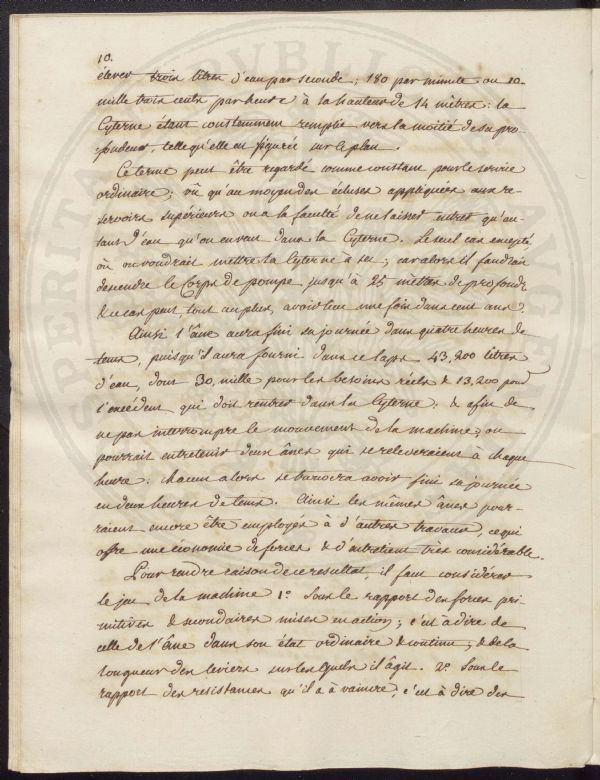 10.
élever trois litres d'eau par seconde; 180 par minute ou 10-
mille trois cents par heure à la hauteur de 14 mètres: la
Cyterne étant constemment remplie vers la moitié de sa pro-
fondeur, telle qu'elle est figurée sur le plan.
Ce terme peut être regardé comme constant pour le service
ordinaire; vû qu'au moyen des écluses appliquées aux re-
servoirs supérieurs on a la faculté de ne laisser entrer qu'au-
tant d'eau qu'on en veut dans la Cyterne. Le seul cas excepté,
où on voudrait mettre la Cyterne à sec; car alors il faudrait
descendre le Corps de pompe jusqu'à 25 mètres de profondr
& ce cas peut, tout au plus, avoir lieu une fois dans cent ans.
Ainsi l'âne aura fini sa journée dans quatre heures de
tems, puisqu'il aura fourni dans ce laps 43,200 litres
d'eau, dont 30, mille pour les besoins réels & 13,200 pour
l'excédent qui doit rentrer dans la Cyterne. & afin de
ne pas interrompre le mouvement de la machine, on
pourrait entretenir deux ânes qui se releveraient à chaque
heure: chacun alors se trouvera avoir fini sa journée
en deux heures de tems. Ainsi les mêmes ânes pour-
raient encore être employés à d'autres travaux, ce qui
offre une économie de forces & d'entretien très considérable.
Pour rendre raison de ce resultat, il faut considérer
le jeu de la machine 1.° Sous le rapport des forces pri-
mitives & secondaires mises en action; c'est à dire de
celle de l'âne dans son état ordinaire & continu; & de la
longueur des leviers sur lesquels il âgit. 2.° Sous le
rapport des resistances qu'il a à vaincre; c'est à dire des
SPERITA
PVBLI
AVGET